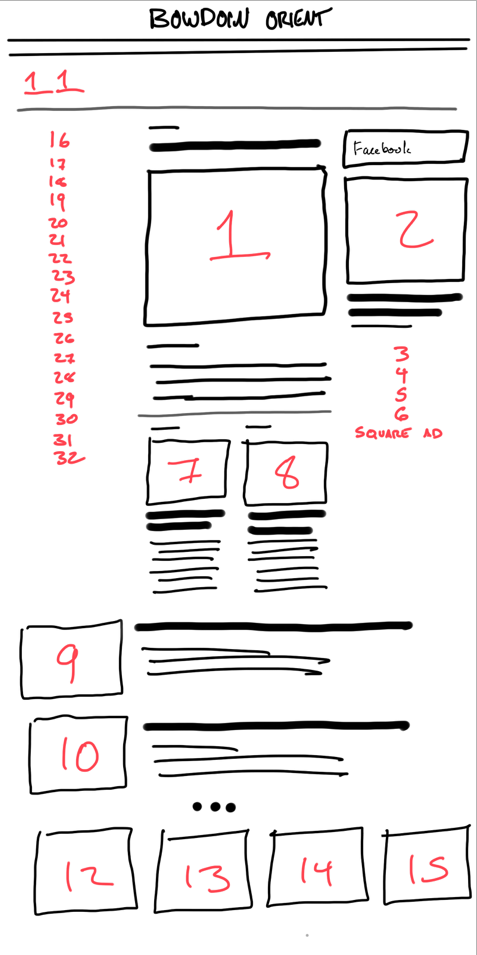 BOWDOIN ORIENT
11
16
17
18
19
20
21
22
23
24
25
26
27
28
29
30
31
32
1
Facebook
2
3
4
5
6
SQUARE AD
7
8
9
10
12
13
14
15